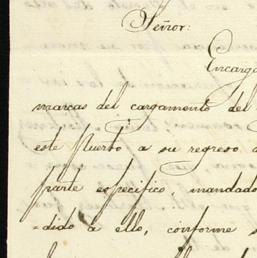 Señor:
Encarga
marcas del cargamento del
este Puerto a su regreso
parte especifico, mandado
=dido a ello, conforme